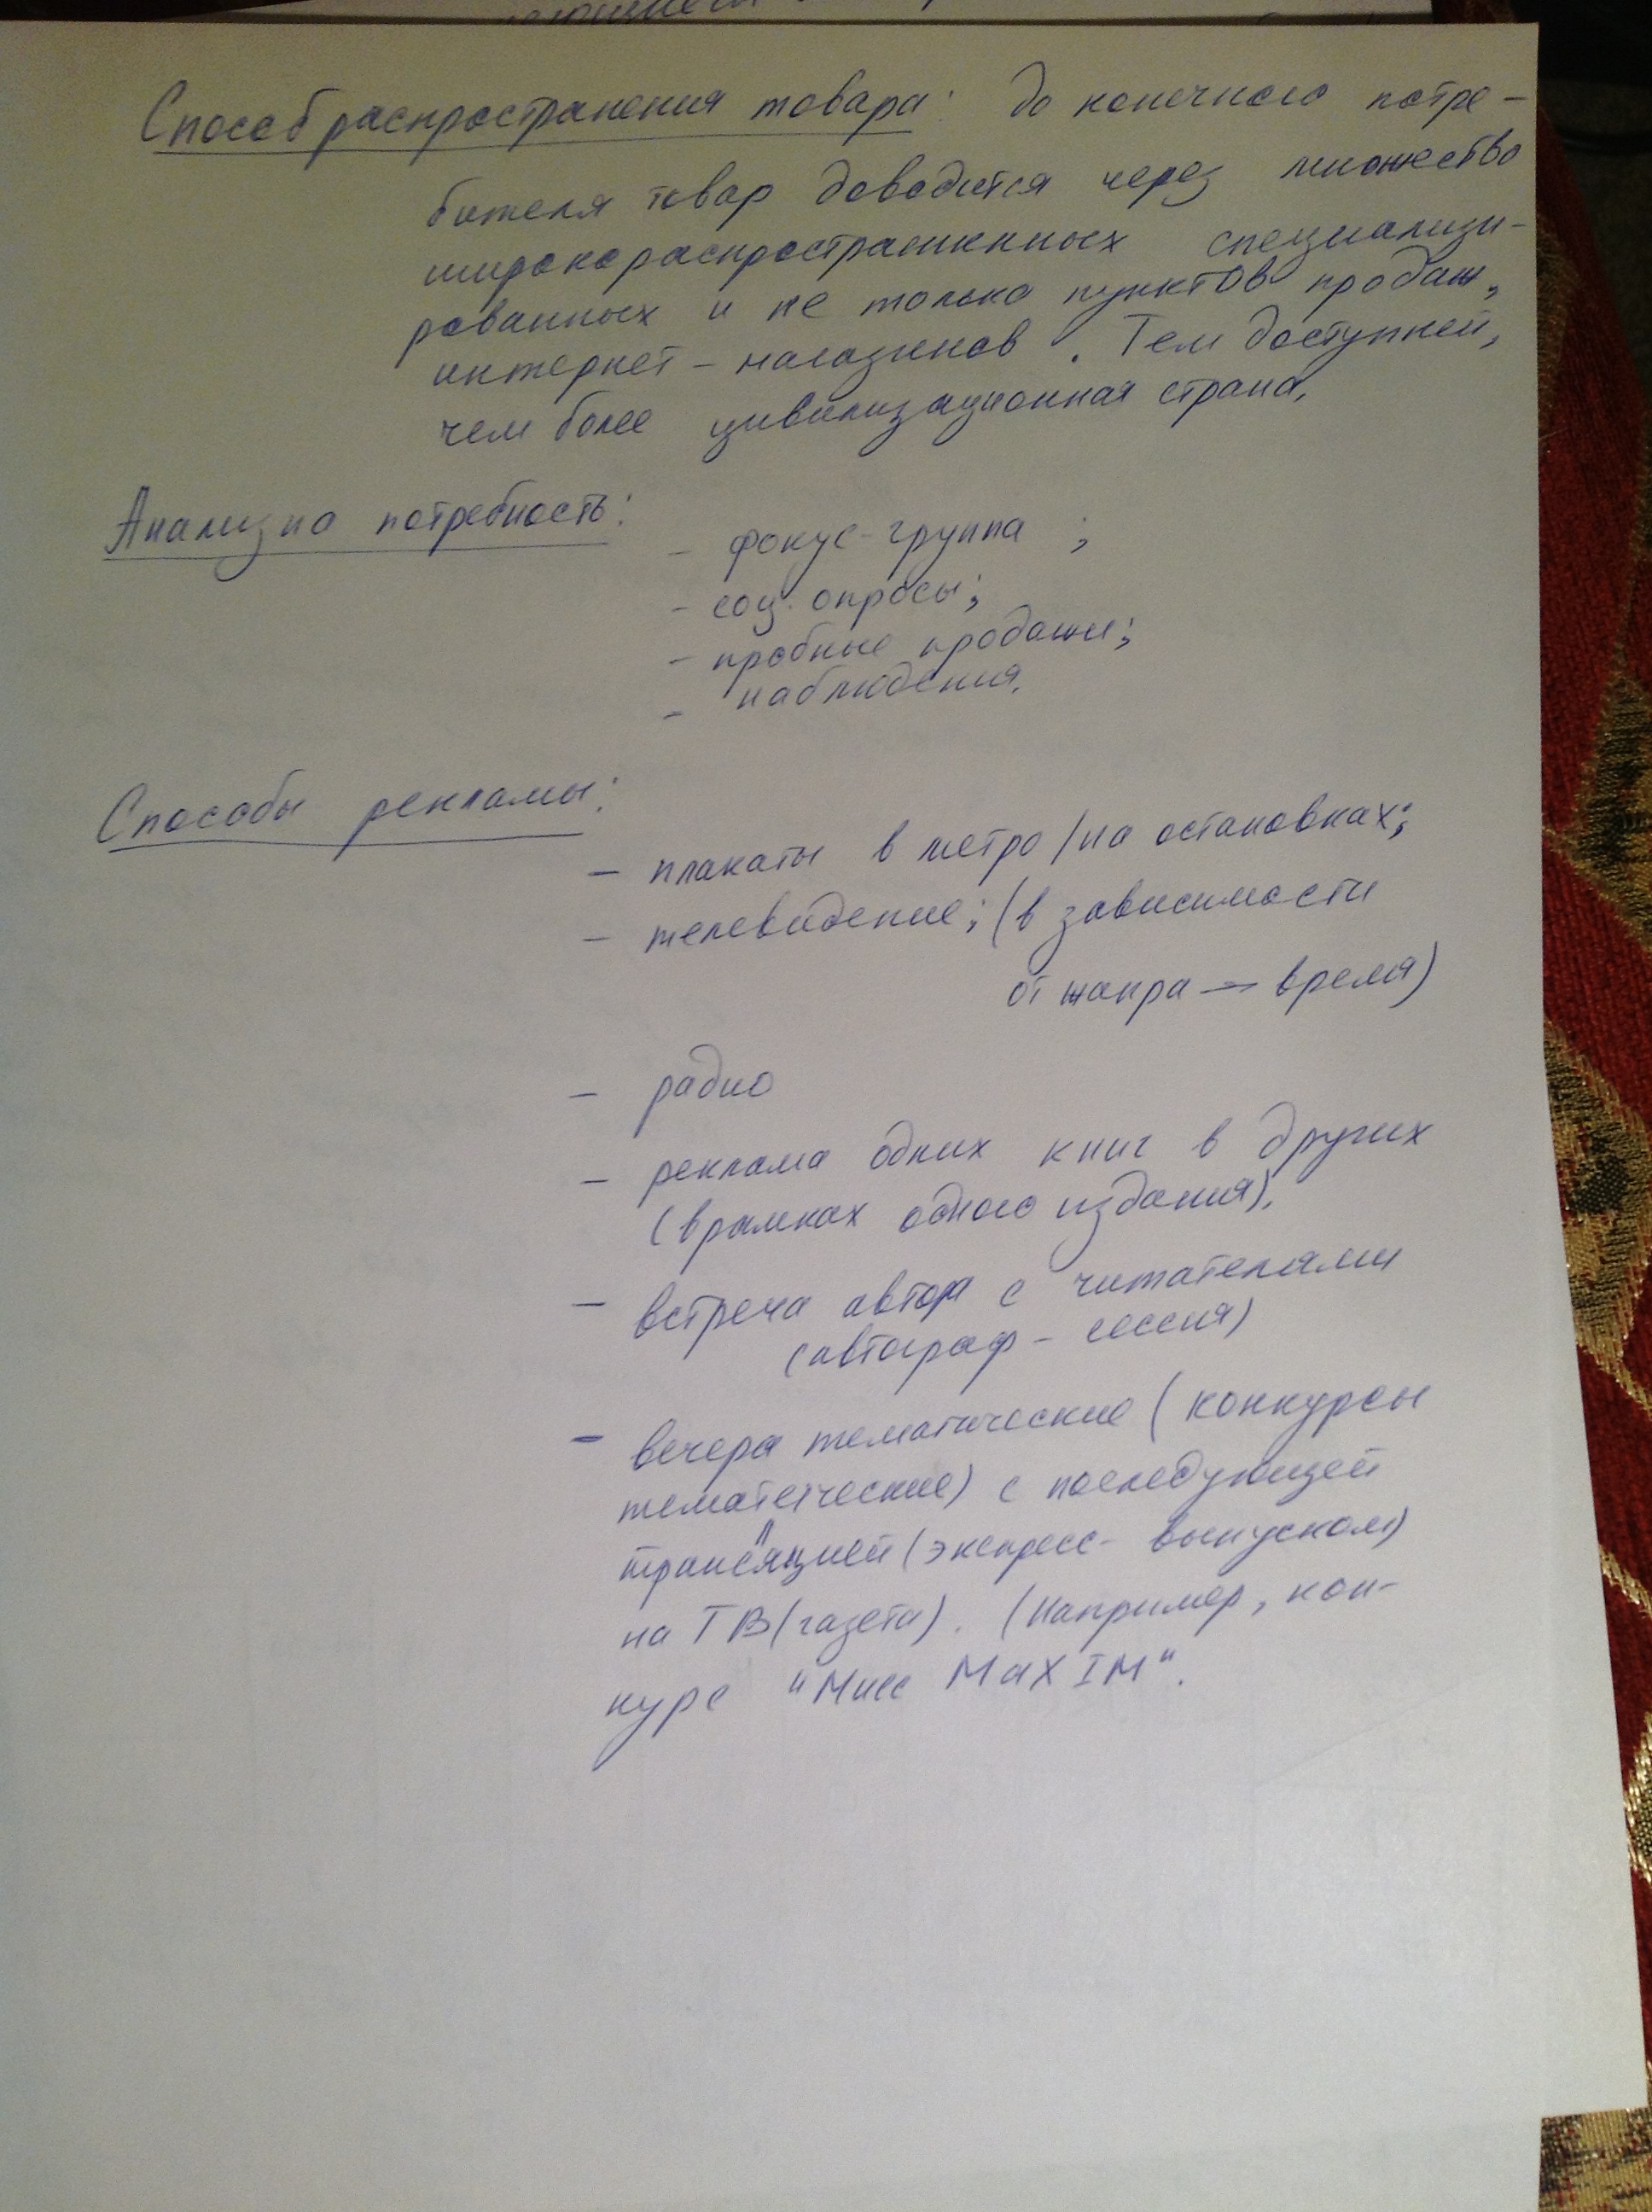 Способ распространения товара: до конечного потре-
бителя товар доводится через множество
широкораспространенных специализи-
рованных и не только пунктов продаж,
интернет-магазинов. Тем доступней,
чем более цивилизационная страна.
Анализ на потребность:
- фокус-группа ;
- соц. опросы;
- пробные продажи;
- наблюдения.
Способы рекламы:
- плакаты в метро/на остановках;
- телевидение; (в зависимости
от жанра → время)
- радио
- реклама одних книг в других
(в рамках одного издания).
- встреча автора с читателями
(автограф-сессия)
- вечера тематические (конкурсы
тематические) с последующей
трансляцией (экспресс-выпуском)
на ТВ (газета). (Например, кон-
курс "Мисс MAXIM".